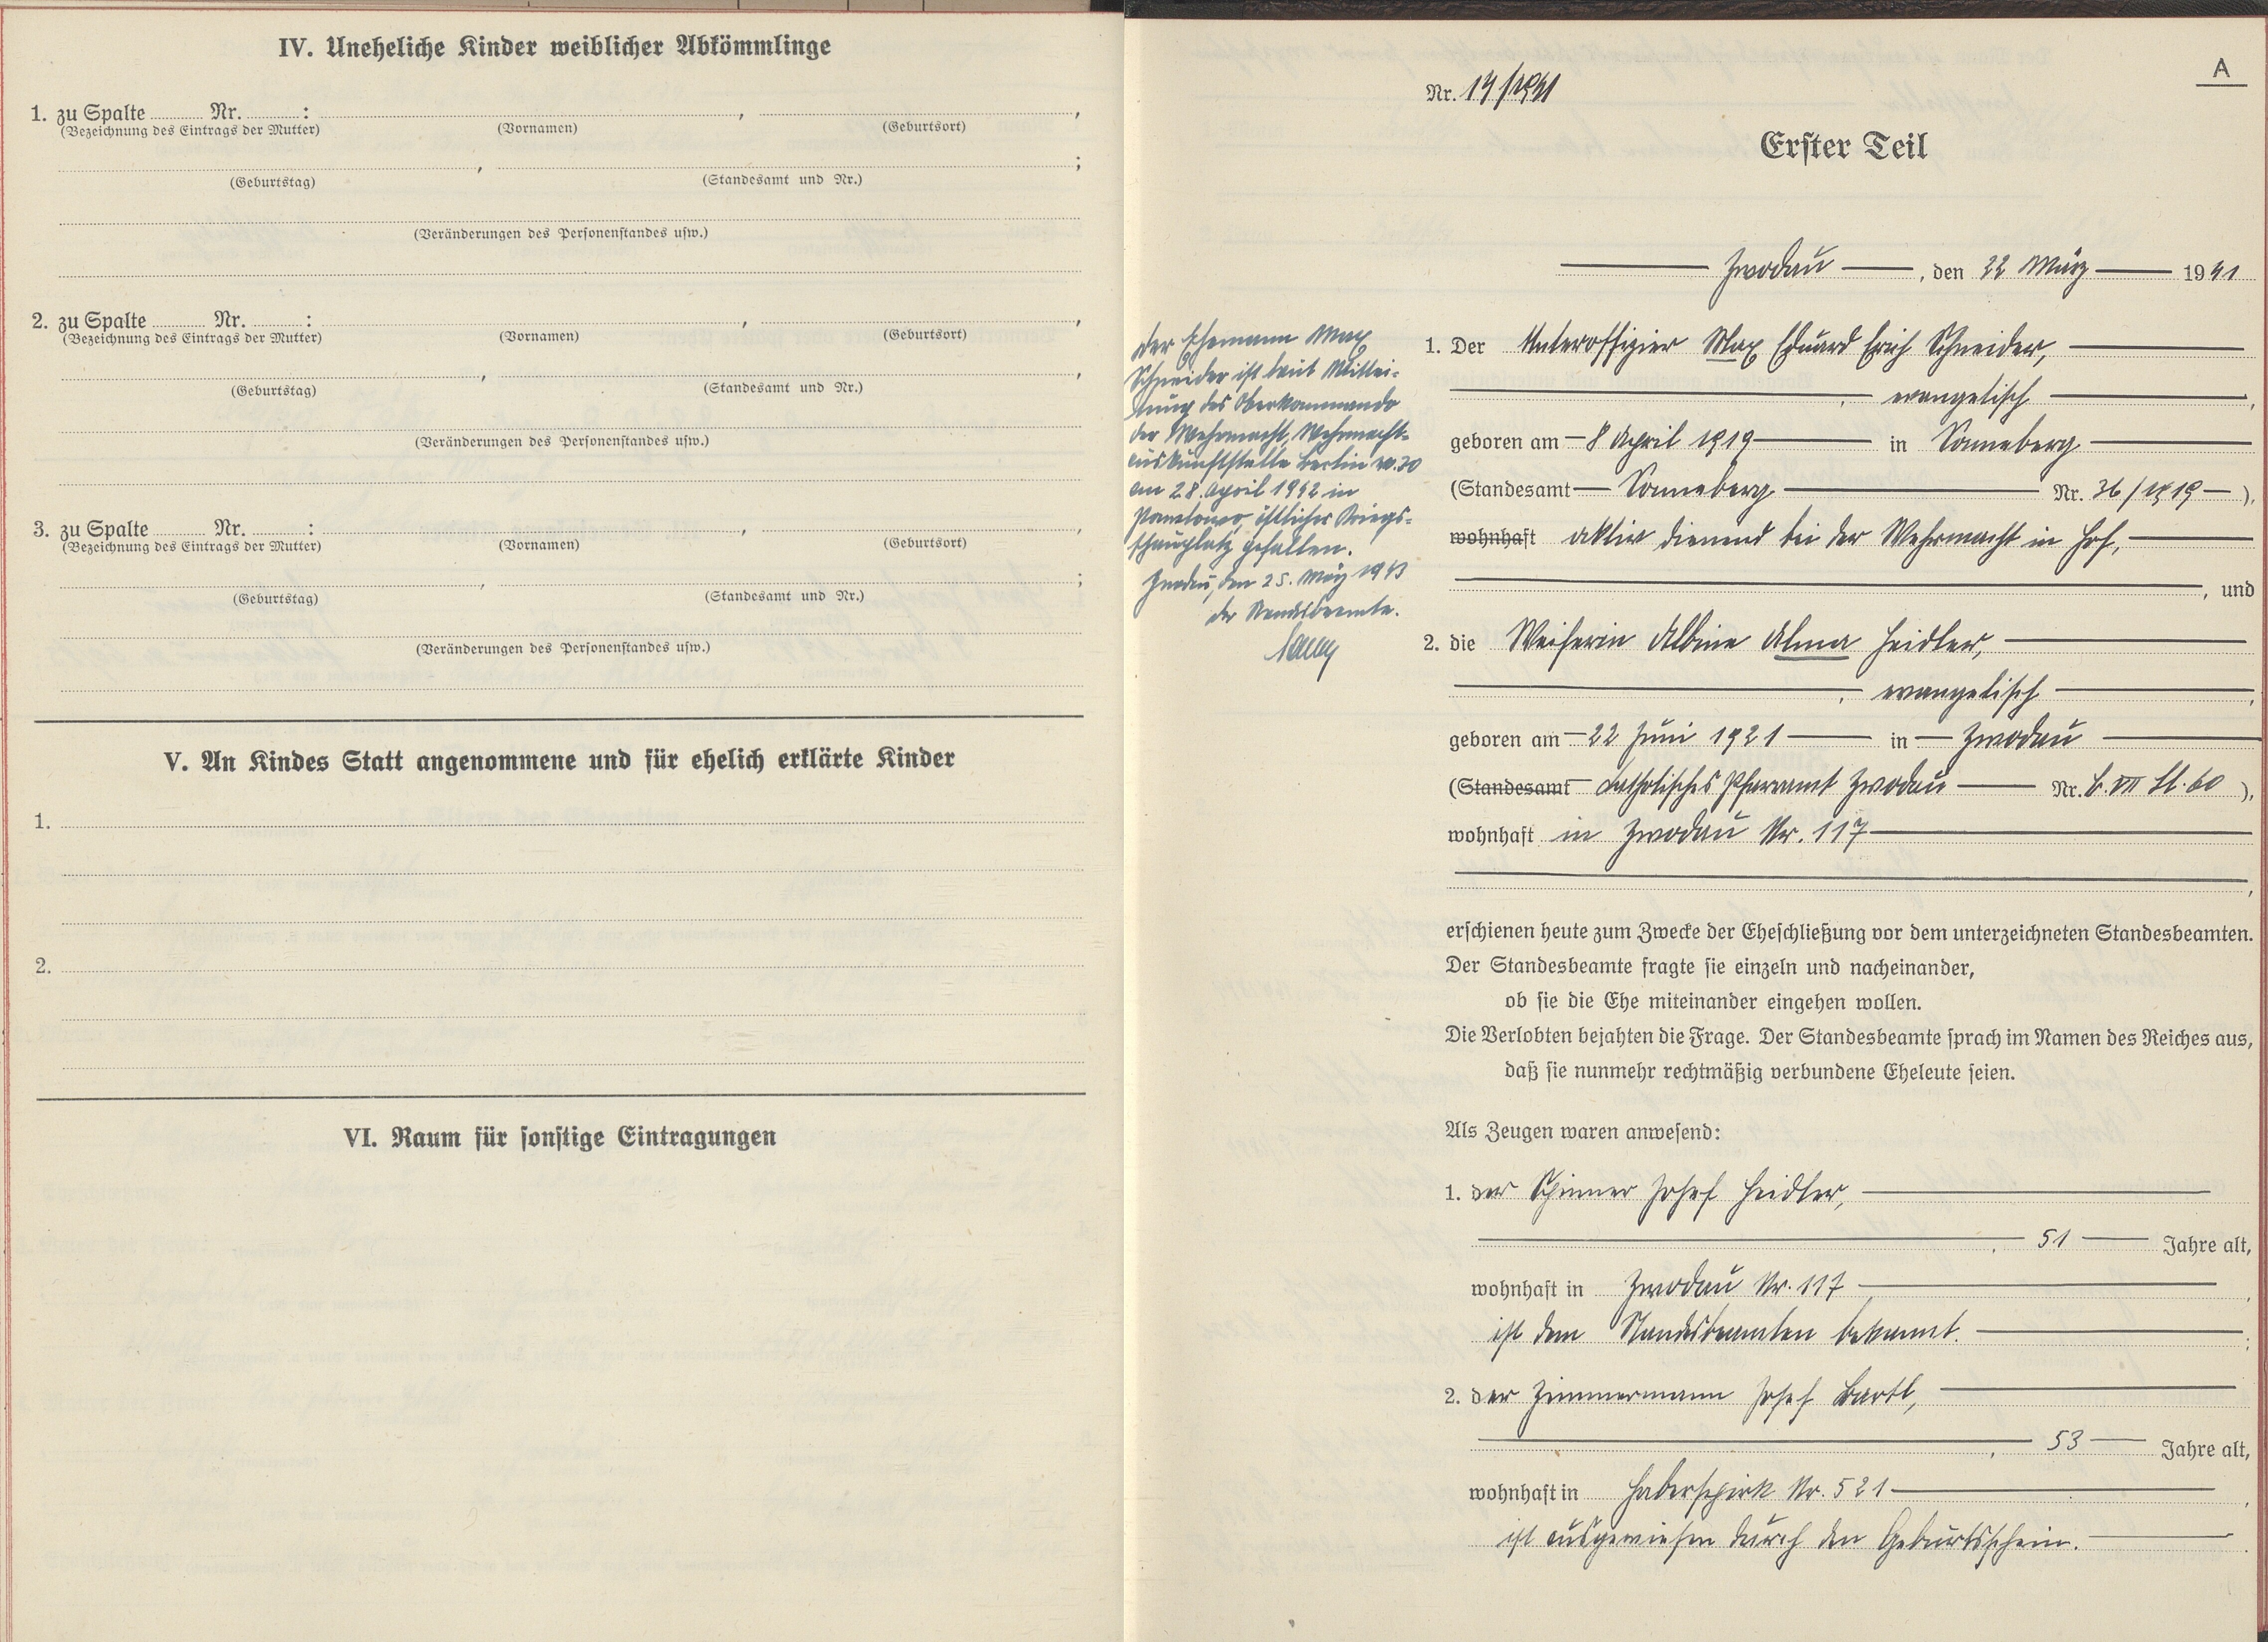 IV. Uneheliche Kinder weiblicher Abkömmlinge
1. zu Spalte Nr. : , ,
(Bezeichnung des Eintrags der Mutter) (Vornamen) (Geburtsort)
, ;
(Geburtstag) (Standesamt und Nr.)
(Veränderungen des Personenstandes usw.)
2. zu Spalte Nr. : , ,
(Bezeichnung des Eintrags der Mutter) (Vornamen) (Geburtsort)
, ,
(Geburtstag) (Standesamt und Nr.)
(Veränderungen des Personenstandes usw.)
3. zu Spalte Nr. : , ,
(Bezeichnung des Eintrags der Mutter) (Vornamen) (Geburtsort)
, ;
(Geburtstag) (Standesamt und Nr.)
(Veränderungen des Personenstandes usw.)
V. An Kindes Statt angenommene und für ehelich erklärte Kinder
1.
2.
VI. Raum für sonstige Eintragungen
A
Nr. 14/1941
Erster Teil
Zwodau, den 22 März 1941
Der Ehemann Max
Schneider ist laut Mittei-
lung des Oberkommando
der Wehrmacht, Wehrmacht-
auskunftstelle Berlin W. 30
am 28. April 1942 in
östlicher Kriegs-
schauplatz gefallen.
Zwodau, den 25. März 1943
der Standesbeamte.
1. Der Unteroffizier Max Eduard Erich Schneider,
, evangelisch ,
geboren am 8 April 1919 in Sonneberg
(Standesamt Sonneberg Nr. 36/1919 ),
wohnhaft aktiv dienend bei der Wehrmacht in Hof,
, und
2. die Weiferin Albine Alma Heidler,
, evangelisch ,
geboren am 22 Juni 1921 in Zwodau
(Standesamt katholisches Pfarramt Zwodau Nr. B. VII Bl. 60 ),
wohnhaft in Zwodau Nr. 117
,
erschienen heute zum Zwecke der Eheschließung vor dem unterzeichneten Standesbeamten.
Der Standesbeamte fragte sie einzeln und nacheinander,
ob sie die Ehe miteinander eingehen wollen.
Die Verlobten bejahten die Frage. Der Standesbeamte sprach im Namen des Reiches aus,
daß sie nunmehr rechtmäßig verbundene Eheleute seien.
Als Zeugen waren anwesend:
1. der Spinner Josef Heidler,
, 51 Jahre alt,
wohnhaft in Zwodau Nr. 117 ,
ist dem Standesbeamten bekannt. ;
2. der Zimmermann Josef Bartl,
, 53 Jahre alt,
wohnhaft in Haberspirk Nr. 521 ,
ist ausgewiesen durch den Geburtsschein.